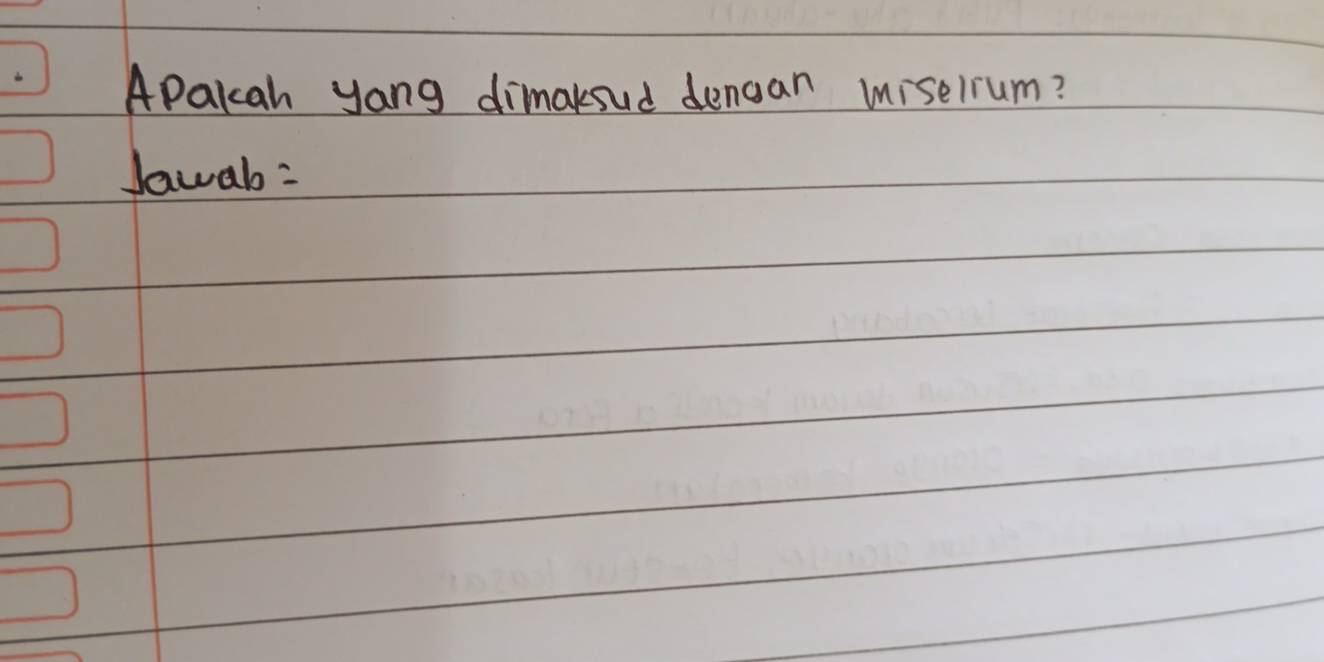 Apakah yang dimaksud dengan miselium?
Jawab =